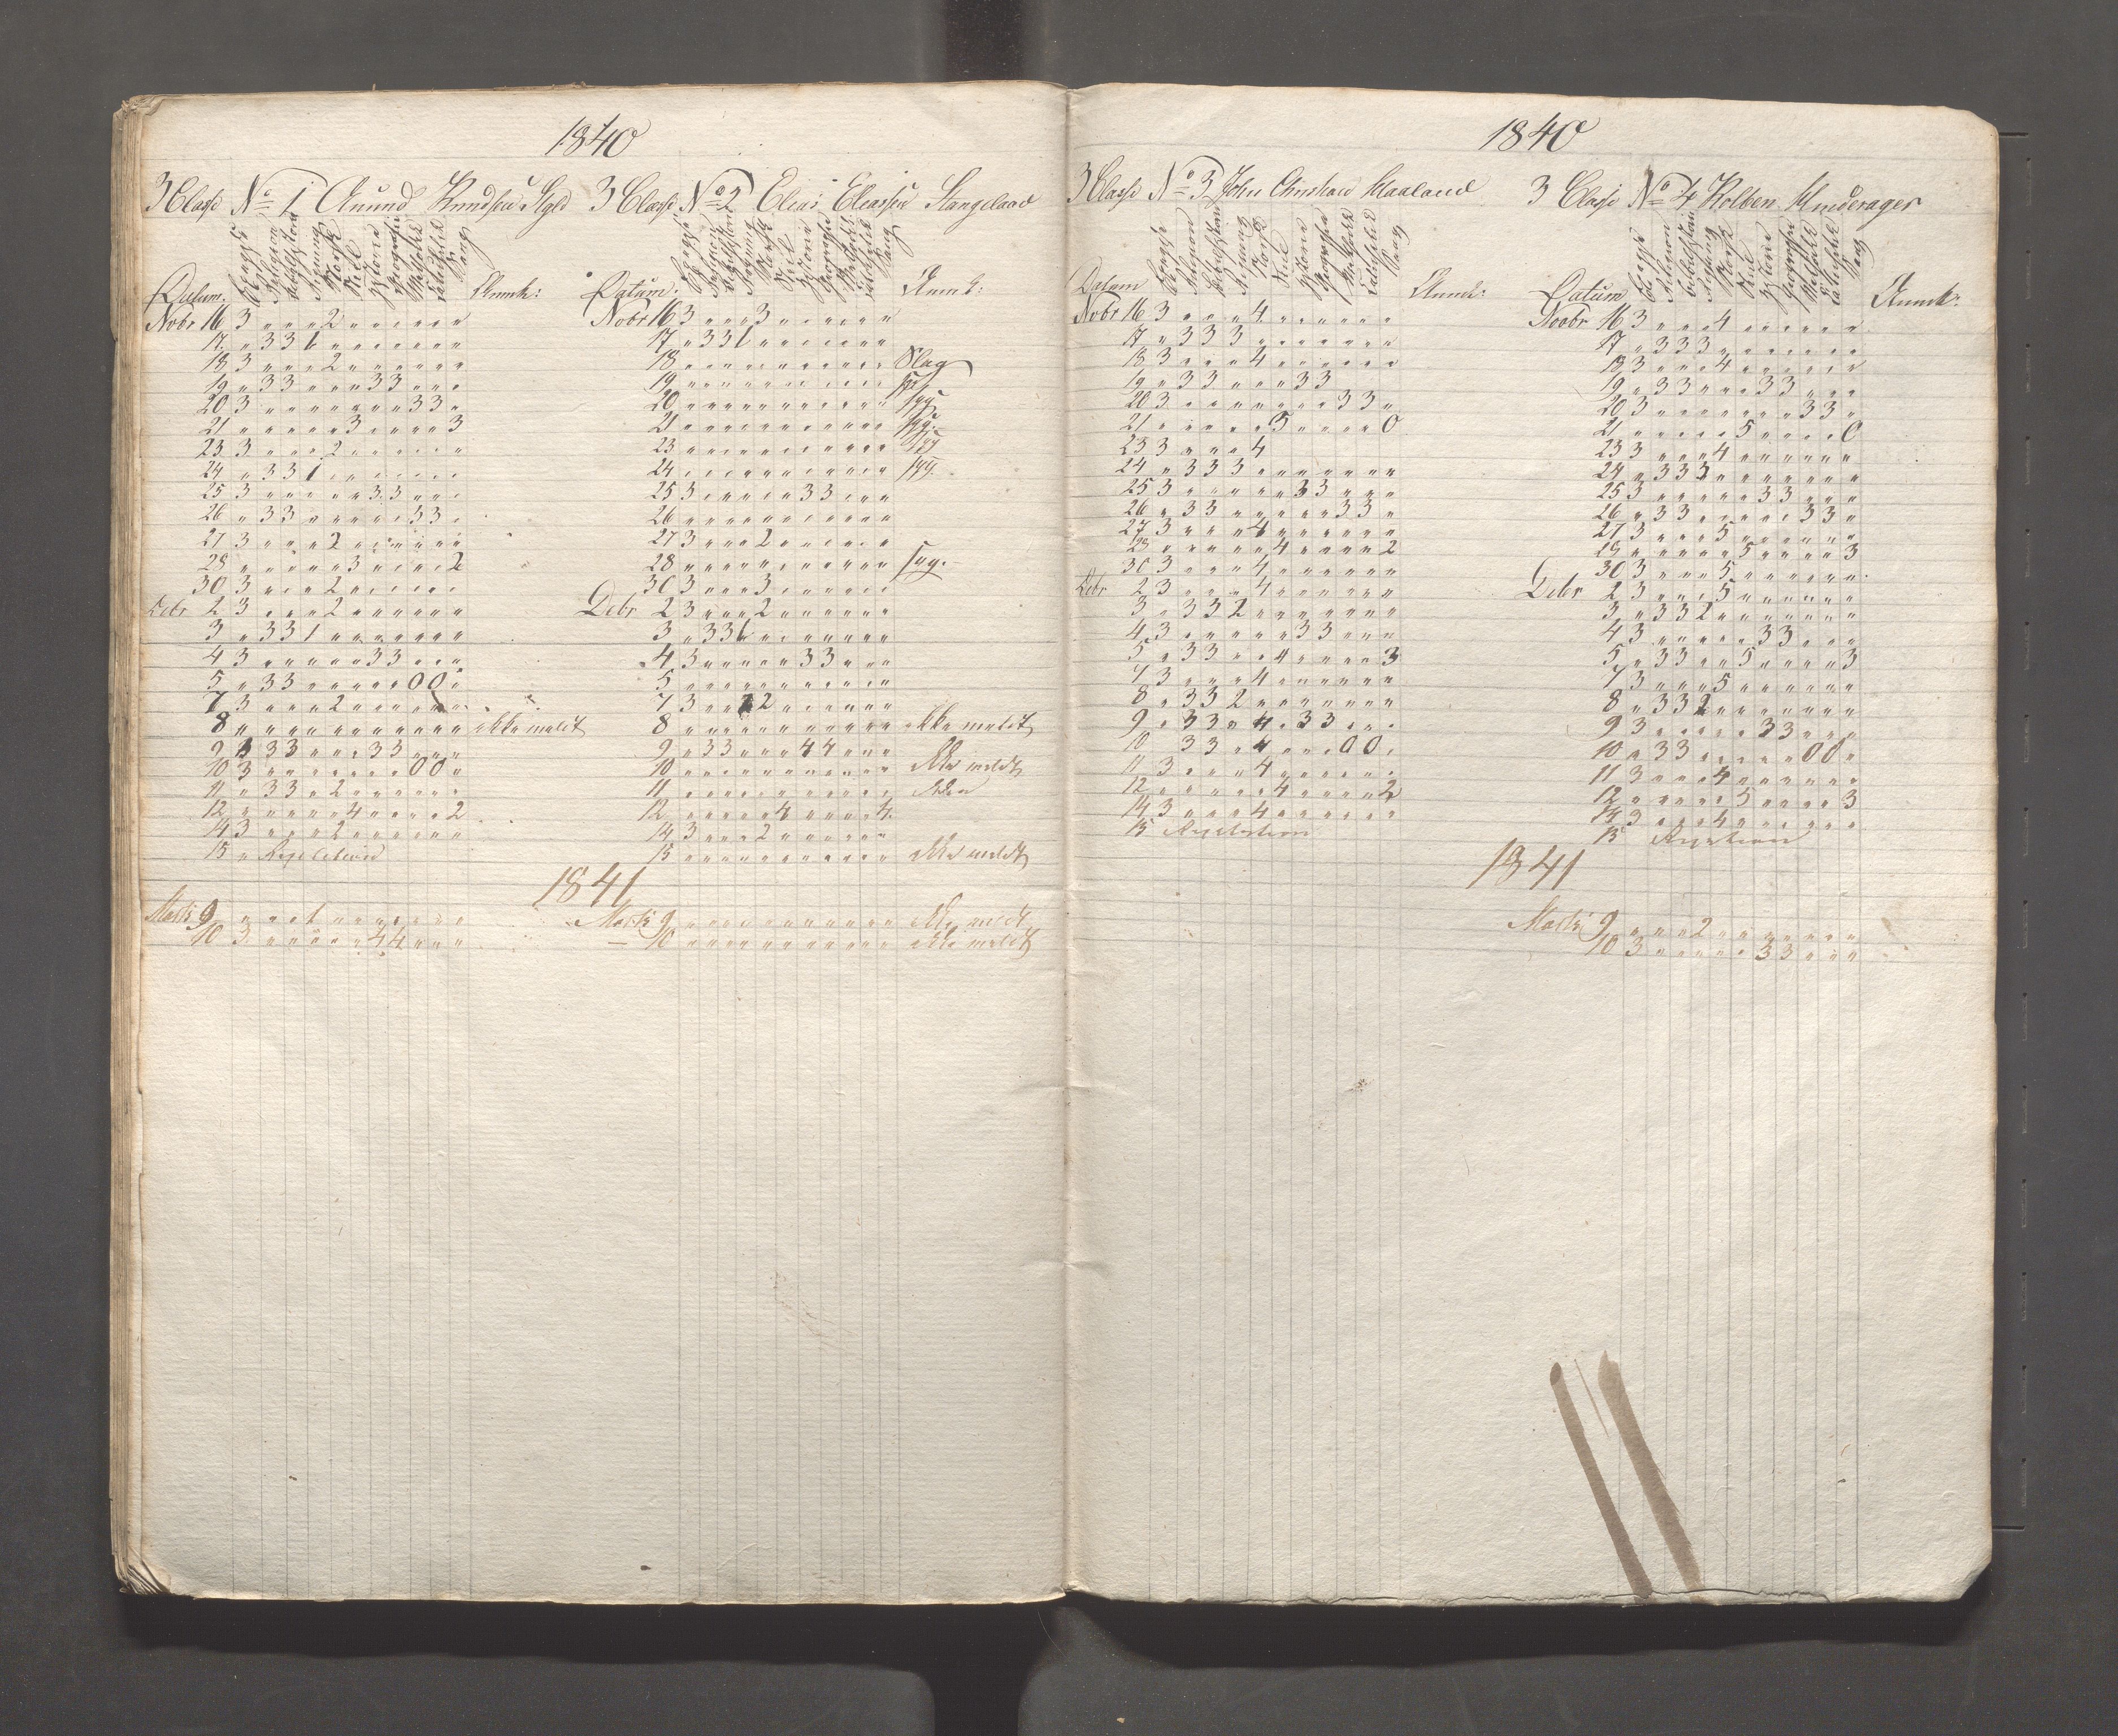 1840
3 Classe No 1 Anund Knudsen
Religion
Regning
Norsk
Stil
Historie
Geographie
Sang
Datum. Anmk:
Novbr 16 3 " " " 2 " " " " " " "
17. " 3 3 1 " " " " " " " "
18 3 " " " 2 " " " " " " "
19 " 3 3 " " " 3 3 " " "
20 3 " " " " " " " 3 3 "
21 " " " " " 3 " " " " 3
23 3 " " " 2 " " " " " "
24 " 3 3 1 " " " " " " "
25 3 " " " " " 3 3 " " "
26 " 3 3 " " " " " 3 3 "
27 3 " " " 2 " " " " " "
28 " " " " " 3 " " " " 2
30 3 " " " 2 " " " " " "
Debr 2 3 " " " 2 " " " " " "
3 " 3 3 1 " " " " " " "
4 3 " " " " " 3 3 " " "
5 " 3 3 " " " " " 0 0 "
7 3 " " " 2 " " " " " "
8 " " " " " " " " " " " ikke meldt
9 3 3 3 " " " 3 3 " " "
10 3 " " " " " " " 0 0 "
11 " 3 3 " 2 " " " " " "
12 " " " " " 4 " " " " 2
14 3 " " " 2 " " " " " "
15 " Repetition
Marts 9 " " " 1 " " " " " " "
10 3 " " " " " 4 4 " " "
3 Classe No 2 Elias Eliassen Stangeland
Religion
Regning
Norsk
Stil
Historie
Geographie
Sang
Datum: Anmk:
Novbr 16 3 " " " 3 " " " " " "
17 " 3 3 1 " " " " " " "
18 " " " " " " " " " " "
19 " " " " " " " " " " " syg
20 " " " " " " " " " " " syg
21 " " " " " " " " " " " syg.
23 " " " " " " " " " " " syg
24 " " " " " " " " " " " syg.
25 3 " " " " " 3 3 " " "
26 " " " " " " " " " " "
27 3 " " " 2 " " " " " "
28 " " " " " " " " " " " syg.
30 3 " " " 3 " " " " " "
Debr 2 3 " " " 2 " " " " " "
3 " 3 3 1 " " " " " " "
4 3 " " " " " 3 3 " " "
5 " " " " " " " " " " "
7 3 " " 2 " " " " " "
8 " " " " " " " " " " " ikke meldt
9 " 3 3 " " " 4 4 " " "
10 " " " " " " " " " " " ikke meldt
11 " " " " " " " " " " "
12 " " " " " 4 " " " " 4.
14 3 " " " 2 " " " " " "
15 " " " " " " " " " " " ikke meldt
1841
Marts 9 " " " " " " " " " " " ikke meldt
— 10 " " " " " " " " " " " ikke meldt
1840
3 Classe No 3 John Christian Haaland
Religion
Regning
Norsk
Stil
Historie
Geographie
Sang
Datum Anmk:
Novbr 16 3 " " " 4 " " " " " "
17 " 3 3 3 " " " " " " "
18 3 " " " 4 " " " " " "
19 " 3 3 " " " 3 3
20 3 " " " " " " " 3 3 "
21 " " " " " 5 " " " " 0
23 3 " " " 4
24 " 3 3 3 " " " " " " "
25 3 " " " " " 3 3 " " "
26 " 3 3 " " " " " 3 3 "
27 3 " " " 4 " " " " " "
28 " " " " " 4 " " " " 2
30 3 " " " 4 " " " " " "
Debr 2 3 " " " 4 " " " " " "
3 " 3 3 2 " " " " " " "
4 3 " " " " " 3 3 " " "
5 " 3 3 " " 4 " " " " 3
7 3 " " " 4 " " " " " "
8 " 3 3 2 " " " " " " "
9 " 3 3 " 4 " 3 3 " " "
10 3 3 " 4 " " " 0 0 "
11 3 " " " 4 " " " " " "
12 " " " " " 4 " " " " 2
14 3 " " " 4 " " " " " "
15 Repetition
3 Classe No 4 Kolben
Religion
Regning
Norsk
Stil
Historie
Geographie
Sang
Datum Anmk:
Novbr 16 3 " " " 4 " " " " " "
17 " 3 3 3 " " " " " " "
18 3 " " " 4 " " " " " "
19 " 3 3 " " " 3 3 " " "
20 3 " " " " " " " 3 3 "
21 " " " " " 5 " " " " 0
23 3 " " " 4 " " " " " "
24 " 3 3 3 " " " " " " "
25 3 " " " " " 3 3 " " "
26 " 3 3 " " " " " 3 3 "
27 3 " " " 5 " " " " " "
" " " " " 5 " " " " 3
30 3 " " " 5 " " " " " "
Debr 2 3 " " " 5 " " " " " "
3 " 3 3 2 " " " " " " "
4 3 " " " " " 3 3 " " "
5 " 3 3 " " 5 " " " " 3
7 3 " " " 5 " " " " " "
8 " 3 3 2 " " " " " " "
9 3 " " " " " 3 3 " " "
10 " 3 3 " " " " " 0 0 "
11 3 " " " 4 " " " " " "
12 " " " " " 5 " " " " 3
14 3 " " " 4 " " " " " "
15 Repetition
1841
Marts 9 " " " 2 " " " " " " "
10 3 " " " " " 3 3 " " "